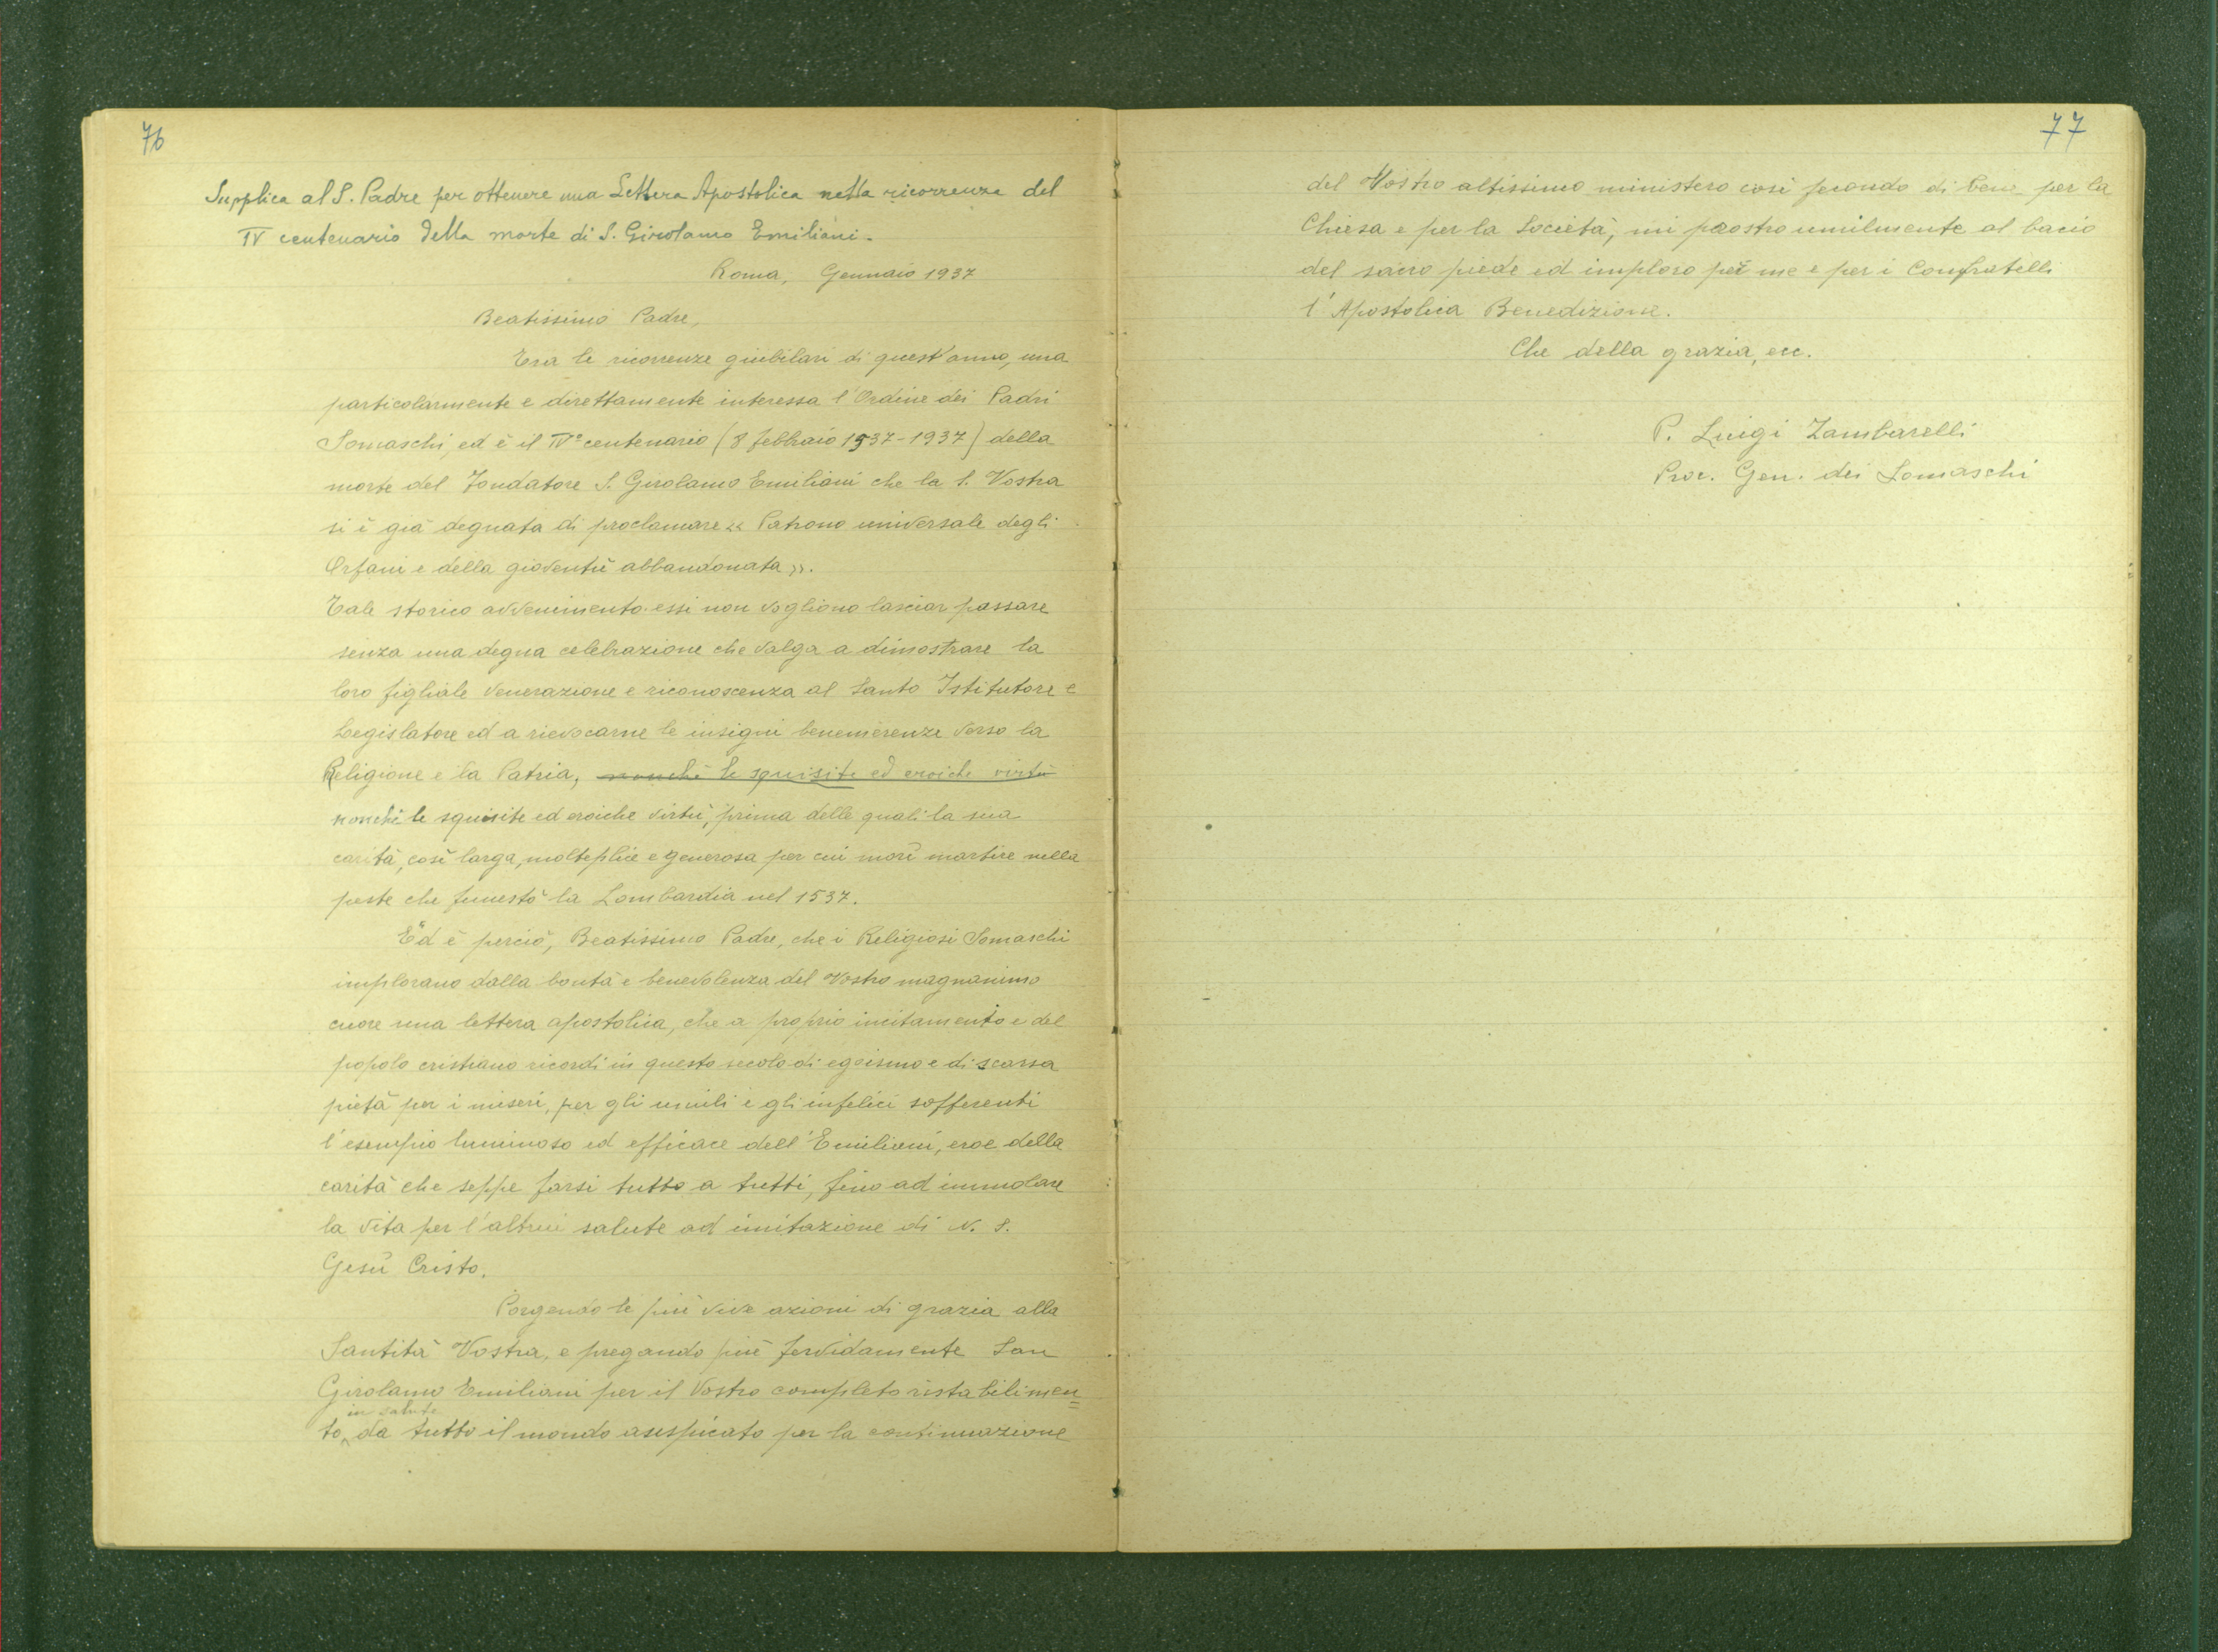 76
Supplica al S. Padre per ottenere una Lettera Apostolica nella ricorrenza del
IV centenario della morte di S. Girolamo Emiliani.
Roma, Gennaio 1937
Beatissimo Padre,
Tra le ricorrenze giubilari di quest'anno, una
particolarmente e direttamente interessa l'Ordine dei Padri
Somaschi, ed è il IV° centenario (8 febbraio 1537-1937) della
morte del Fondatore S. Girolamo Emiliani che la S. Vostra
si è già degnata di proclamare « Patrono universale degli
Orfani e della gioventù abbandonata ».
Tale storico avvenimento essi non vogliono lasciar passare
senza una degna celebrazione che valga a dimostrare la
loro figliale venerazione e riconoscenza al Santo Istitutore e
Legislatore ed a rievocarne le insigni benemerenze verso la
Religione e la Patria, nonchè le squisite ed eroiche virtù
nonchè le squisite ed eroiche virtù, prima delle quali la sua
carità, così larga, molteplice e generosa per cui morì martire nella
peste che funestò la Lombardia nel 1537.
Ed è perciò, Beatissimo Padre, che i Religiosi Somaschi
implorano dalla bontà e benevolenza del Vostro magnanimo
cuore una lettera apostolica, che a proprio incitamento e del
popolo cristiano ricordi in questo secolo di egoismo e di scarsa
pietà per i miseri, per gli umili e gli infelici sofferenti
l'esempio luminoso ed efficace dell'Emiliani, eroe della
carità che seppe farsi tutto a tutti, fino ad immolare
la vita per l'altrui salute ad imitazione di N. S.
Gesù Cristo.
Porgendo le più vive azioni di grazia alla
Santità Vostra, e pregando più fervidamente San
Girolamo Emiliani per il Vostro completo ristabilimen=
in salute
to, da tutto il mondo auspicato per la continuazione
77
del Vostro altissimo ministero così fecondo di bene per la
Chiesa e per la Società, mi prostro umilmente al bacio
del sacro piede ed imploro per me e per i Confratelli
l'Apostolica Benedizione.
Che della grazia, ecc.
P. Luigi Zambarelli
Proc. Gen. dei Somaschi